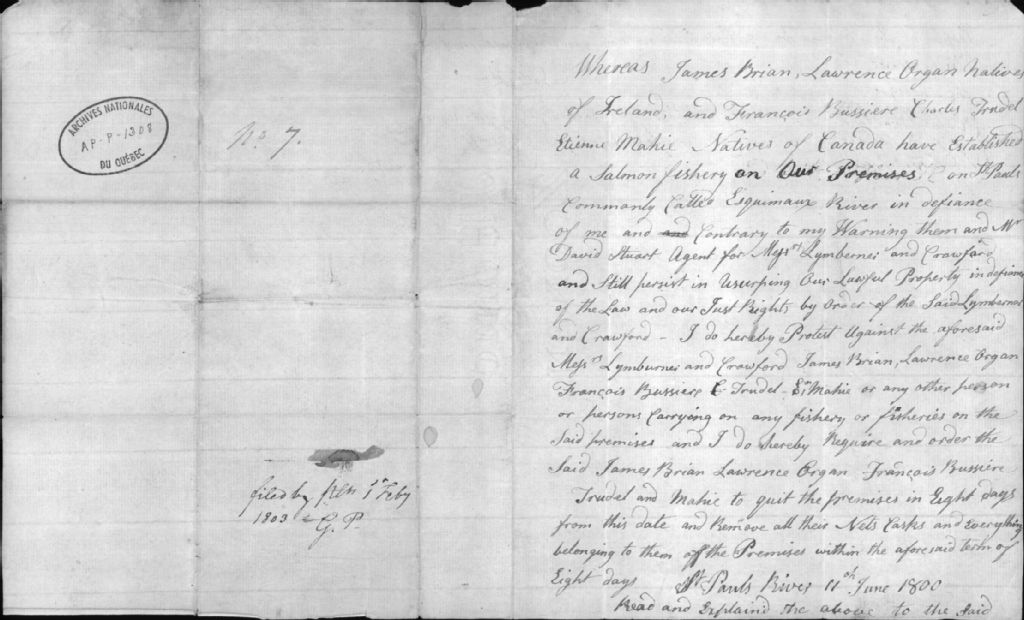 ARCHIVES NATIONALES
AP-P-1308
DU QUÉBEC
No 7.
filed by 1st Feby
1803 G. P.
Whereas James Brian, Lawrence Organ Natives
of Ireland, and François Bussiere Charles Trudel
Etienne Mahie Natives of Canada have Established
a Salmon fishery on Our Premises on St Pauls
Commonly Called Esquimaux River in defiance
of me and and Contrary to my Warning them and Mr
David Stuart Agent for Messrs Lymberner and Crawford
and Still persist in Usurping Our Lawful Property in defiance
of the Law and our Just Rights by Order of the Said Lymberner
and Crawford - I do hereby Protest Against the aforesaid
Messrs Lymburner and Crawford James Brian, Lawrence Organ
François Bussiere C Trudel - En Mahie or any other person
or persons Carrying on any fishery or fisheries on the
Said premises and I do hereby Require and order the
Said James Brian Lawrence Organ François Bussiere
Trudel and Mahie to quit the premises in Eight days
from this date and Remove all their Nets Casks and Everything
belonging to them off the Premises within the aforesaid term of
Eight days St Pauls River 11th June 1800
Read and Explaind the above to the Said